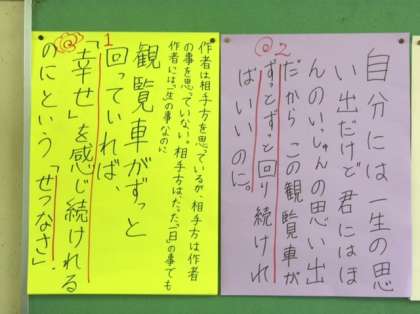 2
自分には一生の思
い出だけど君にはほ
んのいっしゅんの思い出
だから この観覧車が
ずっとずっと回り続けれ
ばいいのに。
作者は相手方を思っているが、相手方は作者
の事を思っていない。相手方はだった一日の事でも
作者には、一生の事なのに
1
観覧車がずっと
回っていれば、
「幸せ」を感じ続けれる
のにという「せつなさ」.